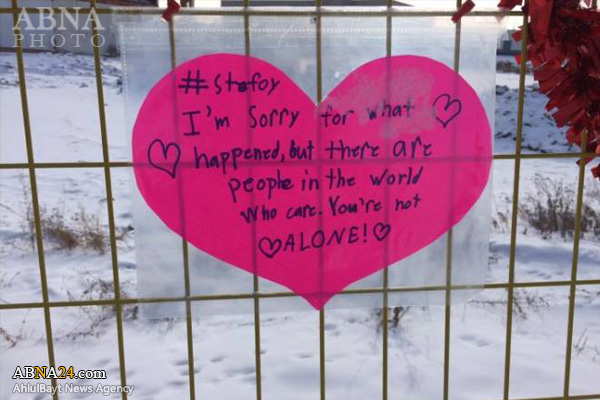 ABNA
PHOTO
#stefoy
I'm Sorry for what
happened, but there are
people in the world
who care. You're not
ALONE!
ABNA24.com
AhlulBayt News Agency